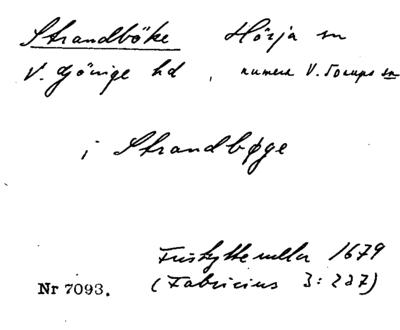 Strandböke Hörja sn
V. Göinge hd, numera V. Torups sn
i Strandbøge
Friskytterulla 1679
(Fabricius 3:227)
Nr 7093.